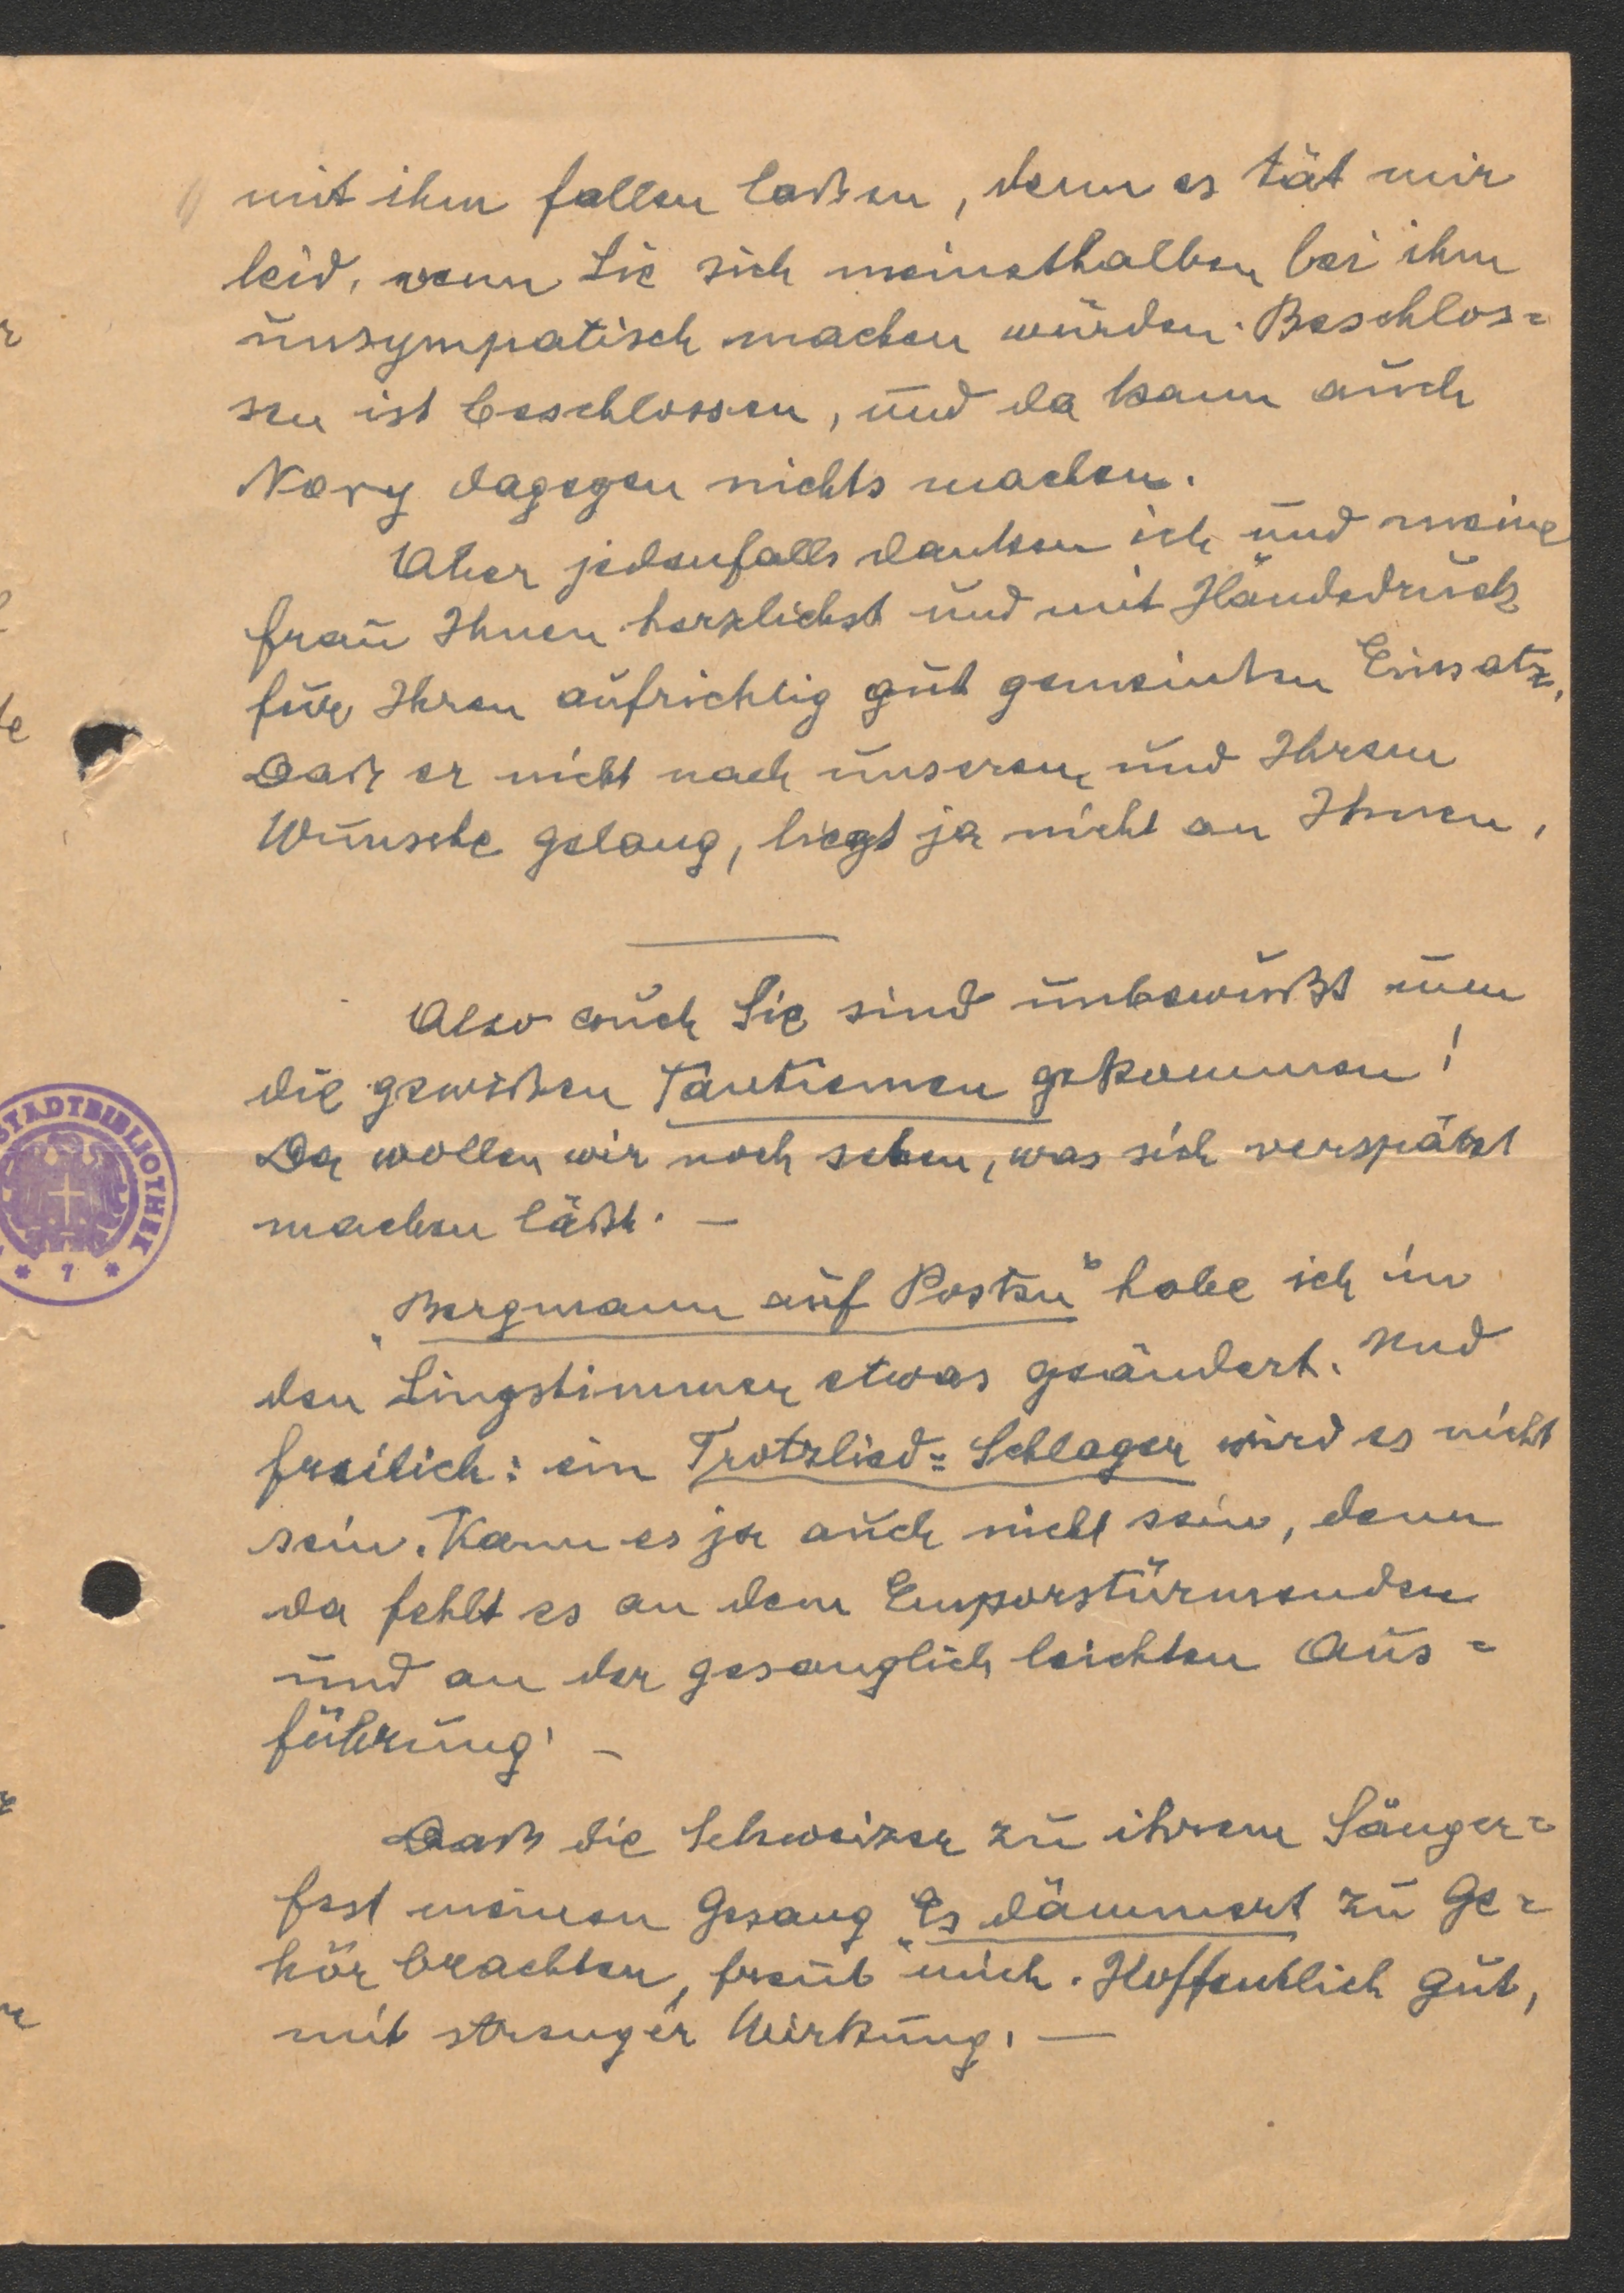 mit ihm fallen laßen, denn es tät mir
leid, wenn Sie sich meinethalben bei ihm
unsympatisch machen würden. Beschlos=
sen ist beschlossen, und da kann auch
dagegen nichts machen.
Aber jedenfalls danken ich und meine
Frau Ihnen herzlichst und mit Händedruck
für Ihren aufrichtig gut gemeinten Einsatz.
Daß er nicht nach unserem und Ihrem
Wunsche gelang, liegt ja nicht an Ihnen.
Also auch Sie sind unbewußt um
die gewißen Tantiemen gekommen!
Da wollen wir noch sehen, was sich verspätet
machen läßt. —
„Bergmann auf Posten" habe ich in
den Singstimmen etwas geändert. Und
freilich: ein Trotzlied=Schlager wird es nicht
sein. Kann es ja auch nicht sein, denn
da fehlt es an dem Emporstürmenden
und an der gesanglich leichten Aus=
führung. –
Daß die Schweizer zu ihrem Sänger=
fest meinen Gesang „Es dämmert" zu Ge=
hör brachten, freut mich. Hoffentlich gut,
mit strenger Wirkung. —
STADTBIBLIOTHEK
* 7 *